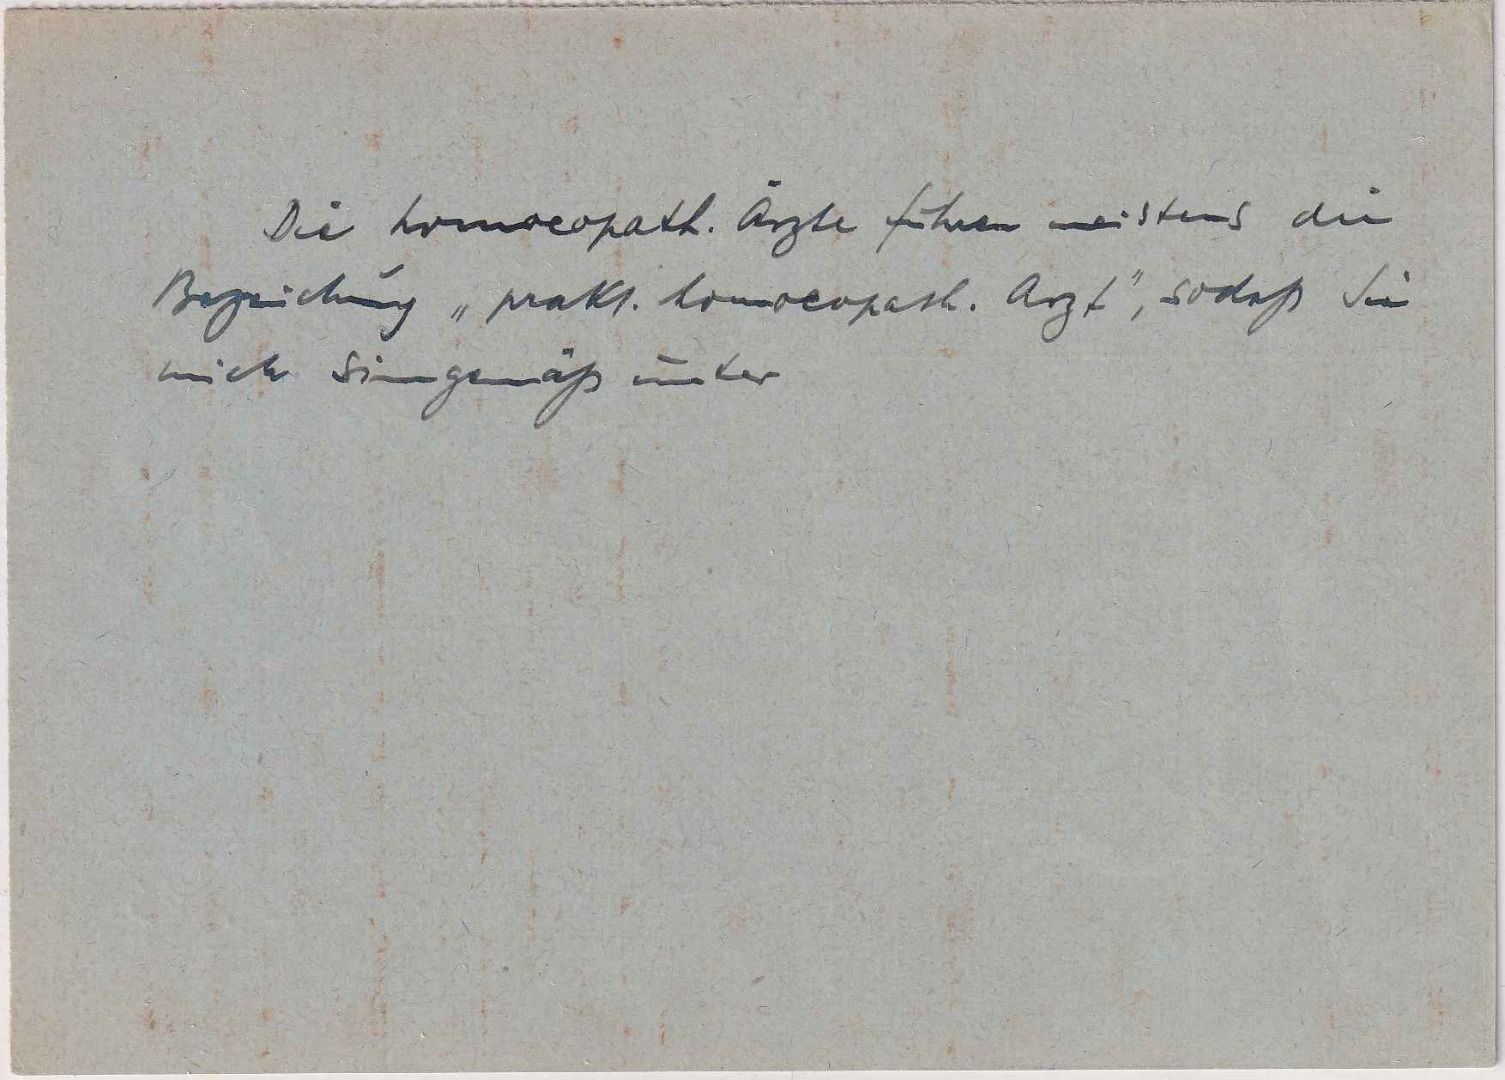 Die homoeopath. Ärzte führen meistens die
Bezeichnung „prakt. homoeopath. Arzt", sodaß Sie
mich sinngemäß unter